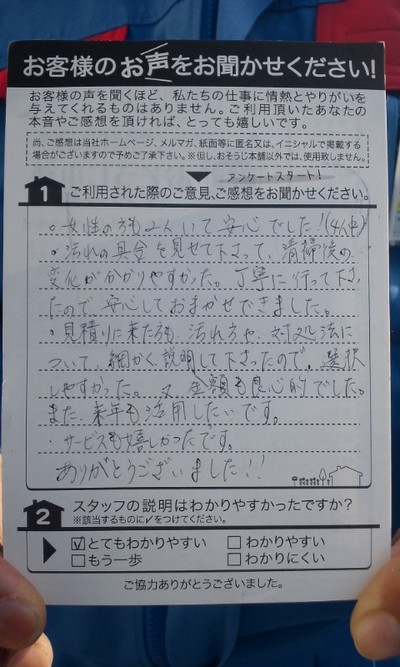 お客様のお声をお聞かせください!
お客様の声を聞くほど、私たちの仕事に情熱とやりがいを
与えてくれるものはありません。ご利用頂いたあなたの
本音やご感想を頂ければ、とっても嬉しいです。
尚、ご感想は当社ホームページ、メルマガ、紙面等に匿名又は、イニシャルで掲載する
場合がございますので予めご了承下さい。※但し、おそうじ本舗以外では、使用致しません。
アンケートスタート!
1 ご利用された際のご意見、ご感想をお聞かせください。
。女性の方も2人いて安心でした!(4人中)
。汚れの具合を見せて下さって、清掃後の
変化が分かりやすかった。丁寧に行って下さっ
たので、安心しておまかせできました。
・見積りに来た方も、汚れ方や、対処法に
ついて、細かく説明して下さったので、選択
しやすかった。又、金額も良心的でした。
また、来年も活用したいです。
・サービスも嬉しかったです。
ありがとうございました!!
2 スタッフの説明はわかりやすかったですか?
※該当するものに✓をつけてください。
☑とてもわかりやすい □わかりやすい
□もう一歩 □わかりにくい
ご協力ありがとうございました。